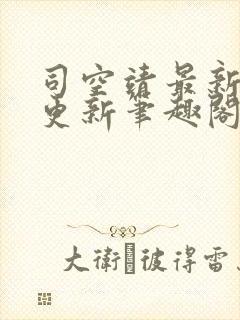 司空靖最新
更新筆趣閣
大衛·彼得雷